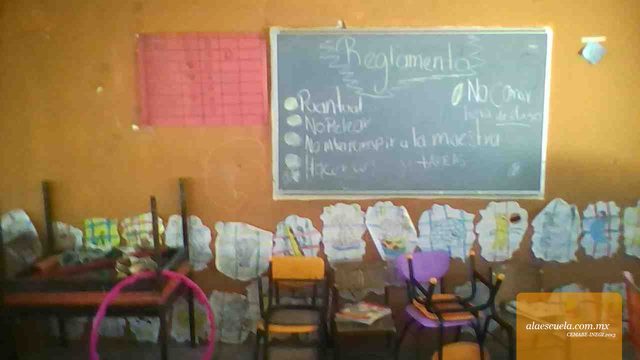 Reglamento
Puntual
No Pelear
No interrumpir a la maestra
Hacer TAREAS
No Comer
alaescuela.com.mx
CEMABE-INEGI 2013